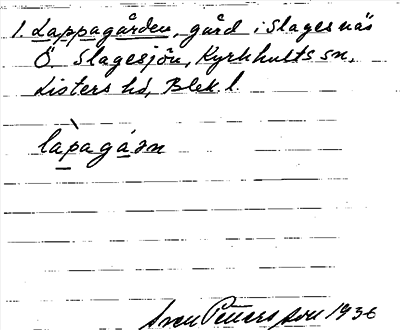 1. Lappagården, gård i Slagesnäs
Ö. Slagesjön, Kyrkhults sn,
Listers hd, Blek. l.
làpagáɹn
Sven Petersson 1936